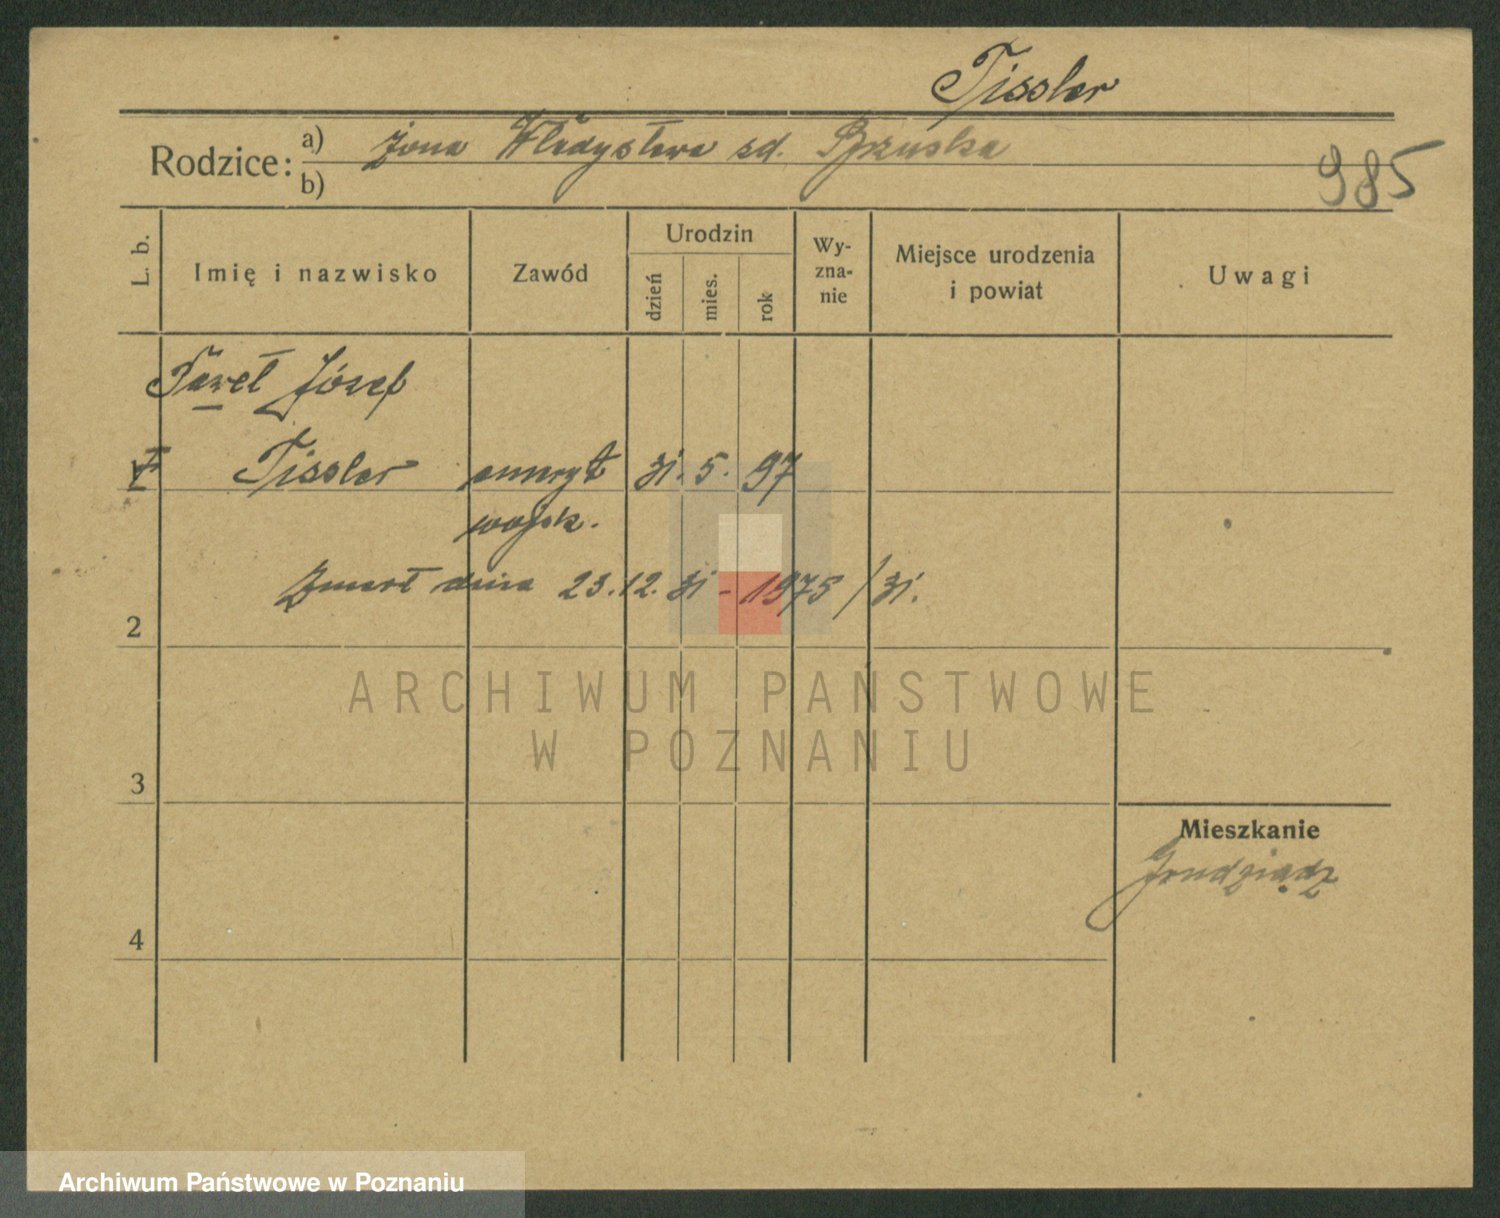 Tissler
Rodzice: a) żona Władysława zd.
b)
985
L. b.
Imię i nazwisko
Zawód
Urodzin
dzień
mies.
rok
Wy-
zna-
nie
Miejsce urodzenia
i powiat
Uwagi
Paweł Józef
1 Tissler emeryt 31. 5. 97
wojsk.
Zmarł dnia 23.12. 31 - 1975 / 31.
2
3
4
Mieszkanie
Grudziądz
ARCHIWUM PAŃSTWOWE
W POZNANIU
Archiwum Państwowe w Poznaniu